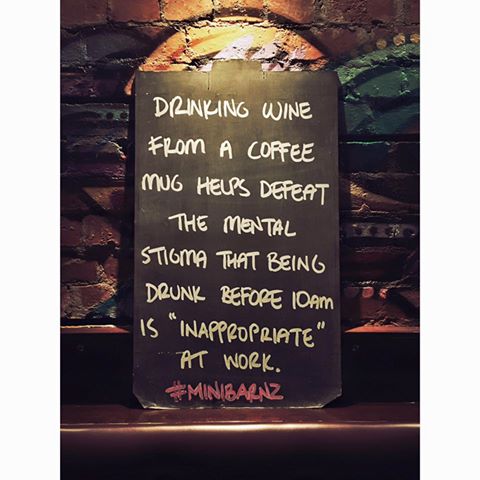 DRINKING WINE
FROM A COFFEE
MUG HELPS DEFEAT
THE MENTAL
STIGMA THAT BEING
DRUNK BEFORE 10am
IS "INAPPROPRIATE"
AT WORK.
#MINIBARNZ